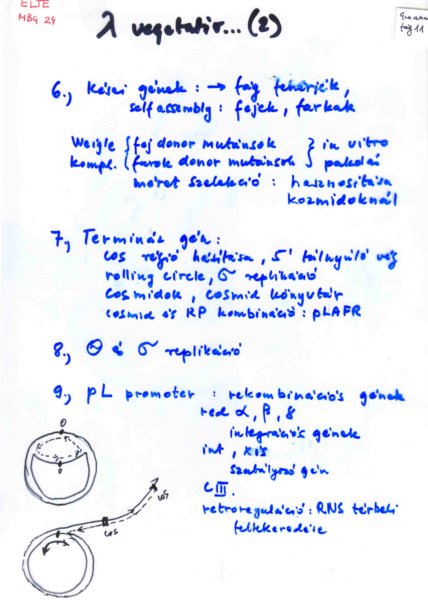 ELTE
MBG 24
λ vegetatív... (2)
fág 11
6., Kései gének : → fág fehérjék,
self assembly : fejek, farkak
Weigle { fej donor mutánsok } in vitro
kompl. { farok donor mutánsok } pakolás
méret szelekció : hasznosítása
kozmidoknál
7., Termináz gén :
cos régió hasítása, 5' túlnyúló vég
rolling circle, σ replikáció
cosmidok, cosmid könyvtár
cosmid és RP kombináció : pLAFR
8., Θ és σ replikáció
9., pL promoter : rekombinációs gének
red α, β, γ
integrációs gének
int, xis
szabályozó gén
CIII.
retroreguláció : RNS térbeli
feltekeredése
O
cos
cos